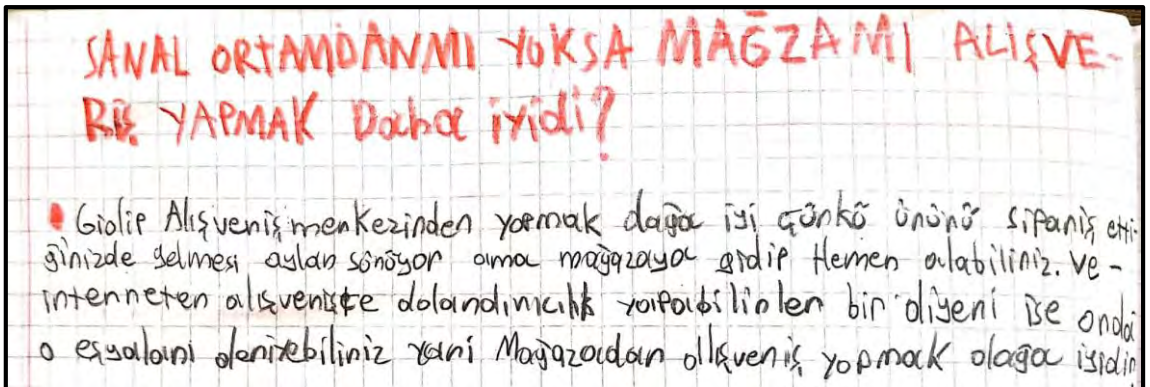 SANAL ORTAMDANMI YOKSA MAĞZAMI ALIŞVE-
RİŞ YAPMAK Daha iyidi?
Gidip Alışveriş merkezinden yapmak dağa iyi çünkö ürünü sipariş etti-
ğinizde gelmesi aylar sörüyor ama mağazaya gidip Hemen alabiliriz. ve-
interneten alışverişte dolandırıcılık yapabilirler bir diyeri ise onda
o eşyaları deniyebiliriz yani Mağazadan alışveriş yapmak dağa iyidir